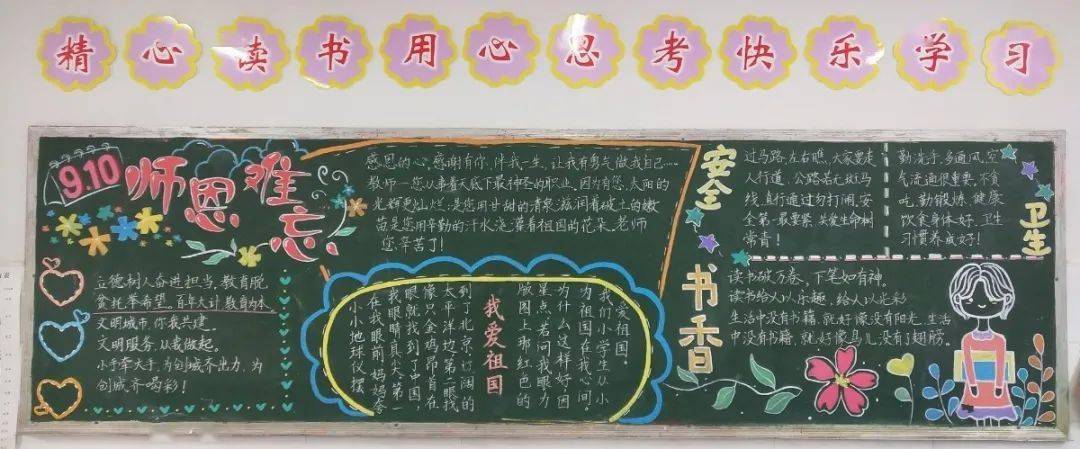 精心读书用心思考快乐学习
9.10
师恩难忘
立德树人奋进担当,教育脱
贫托举希望。百年大计教育为本。
文明城市,你我共建。
文明服务,从我做起。
小手牵大手,为创城齐出力,为
创城齐喝彩!
感恩的心,感谢有你,伴我一生,让我有勇气做我自己……
教师—您从事着天底下最神圣的职业,因为有您,太阳的
光辉更灿烂;是您用甘甜的清泉滋润着破土的嫩
苗是您用辛勤的汗水浇灌着祖国的花朵。老师
您辛苦了!
我爱祖国
小小地球仪摆
在我眼前,妈妈夸
我眼睛真大。第一
眼就找到了中国,
像只金鸡昂首在
太平洋边,第二眼找
到了北京,辽阔的
版图上那红色的
星点,若问我眼力
为什么这样好因
为祖国在我心间。
我们小学生从小
爱祖国。
安全
过马路,左右瞧,大家要走
人行道,公路若无斑马
线,直行通过勿打闹,安
全第一最要紧,关爱生命树
常青!
卫生
勤洗手,多通风,空
气流通很重要,不食
吃,勤锻炼,健康
饮食身体好,卫生
习惯养成好!
书香
读书破万卷,下笔如有神。
读书给人以乐趣,给人以光彩
生活中没有书籍,就好像没有阳光,生活
中没有书籍,就好像鸟儿没有翅膀。